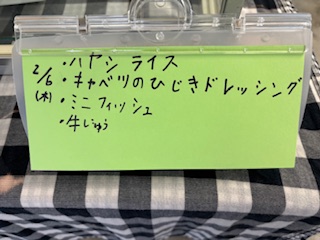 2/6
(木)
・ハヤシライス
・キャベツのひじきドレッシング
・ミニフィッシュ
・牛じゅう